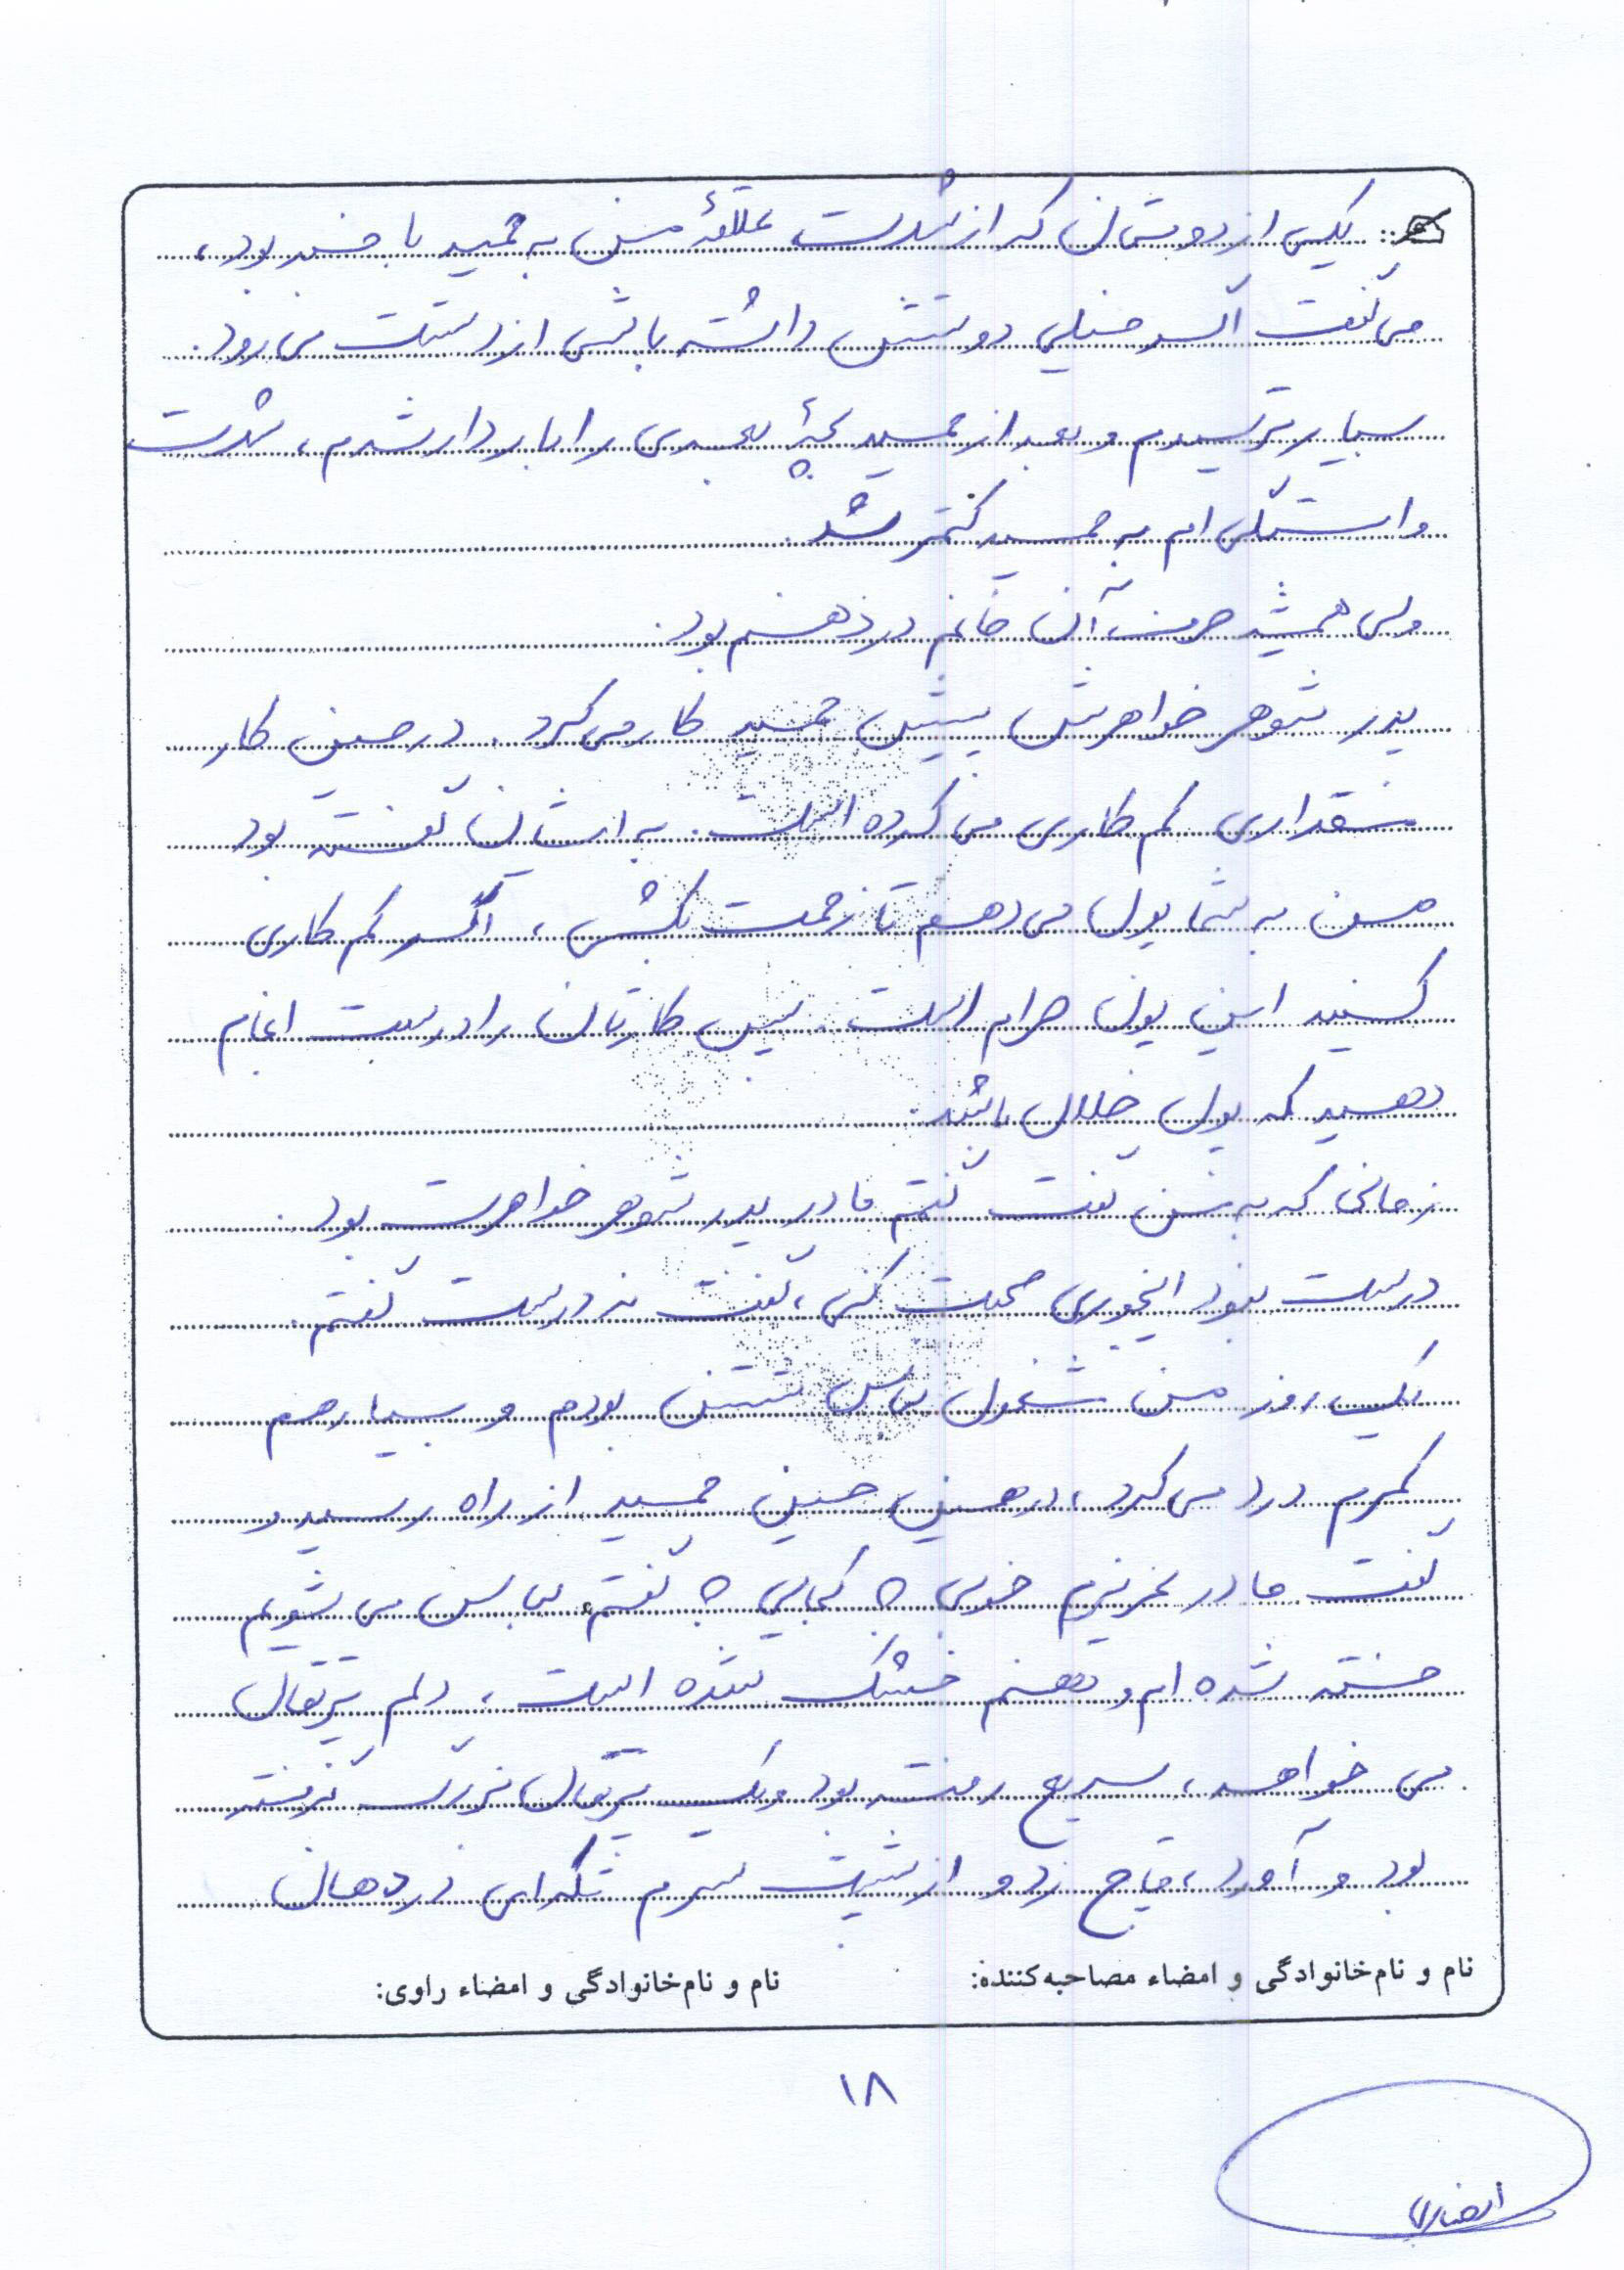 یکی از دوستان که از شدت علاقهٔ من به حمید با خبر بود،
می گفت اگر خیلی دوستش داشته باشی از دستت می رود.
بسیار ترسیدم و بعد از حمید بچهٔ بعدی را باردار شدم، شدت
وابستگی ام به حمید کمتر شد.
ولی همیشه حرف آن خانم در ذهنم بود.
پدر شوهر خواهرش پیش حمید کار می کرد. در حین کار
مقداری کم کاری می کرده است. به ایشان گفته بود
من به شما پول می دهم تا زحمت بکشی، اگر کم کاری
کنید این پول حرام است. پس کارتان را درست انجام
دهید که پول حلال باشد.
زمانی که به من گفت گفتم مادر پدر شوهر خواهرت بود.
درست نبود اینجوری صحبت کنی، گفت نه درست گفتم.
یک روز من مشغول لباس شستن بودم و بسیار هم
کمرم درد می کرد، در همین حین حمید از راه رسید و
گفت مادر عزیزم خوبی؟ کجایی؟ گفتم، لباس می شویم
خسته شده ام و دهنم خشک شده است، دلم پرتقال
می خواهد، سریع رفته بود و یک پرتقال بزرگ گرفته
بود و آورد، قاچ زد و از پشت سرم تکه ای در دهان
نام و نام‌خانوادگی و امضاء مصاحبه‌کننده:
نام و نام‌خانوادگی و امضاء راوی:
۱۸
انصاری